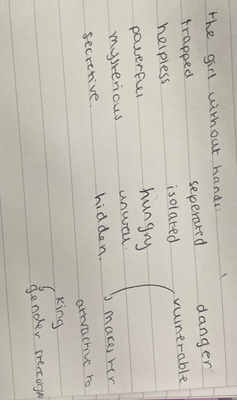 The girl without hands:
trapped seperated danger
helpless isolated vunerable
powerful hungry
mysterious unwell makes her
secretive. hidden. attractive to
King
gender stereotype